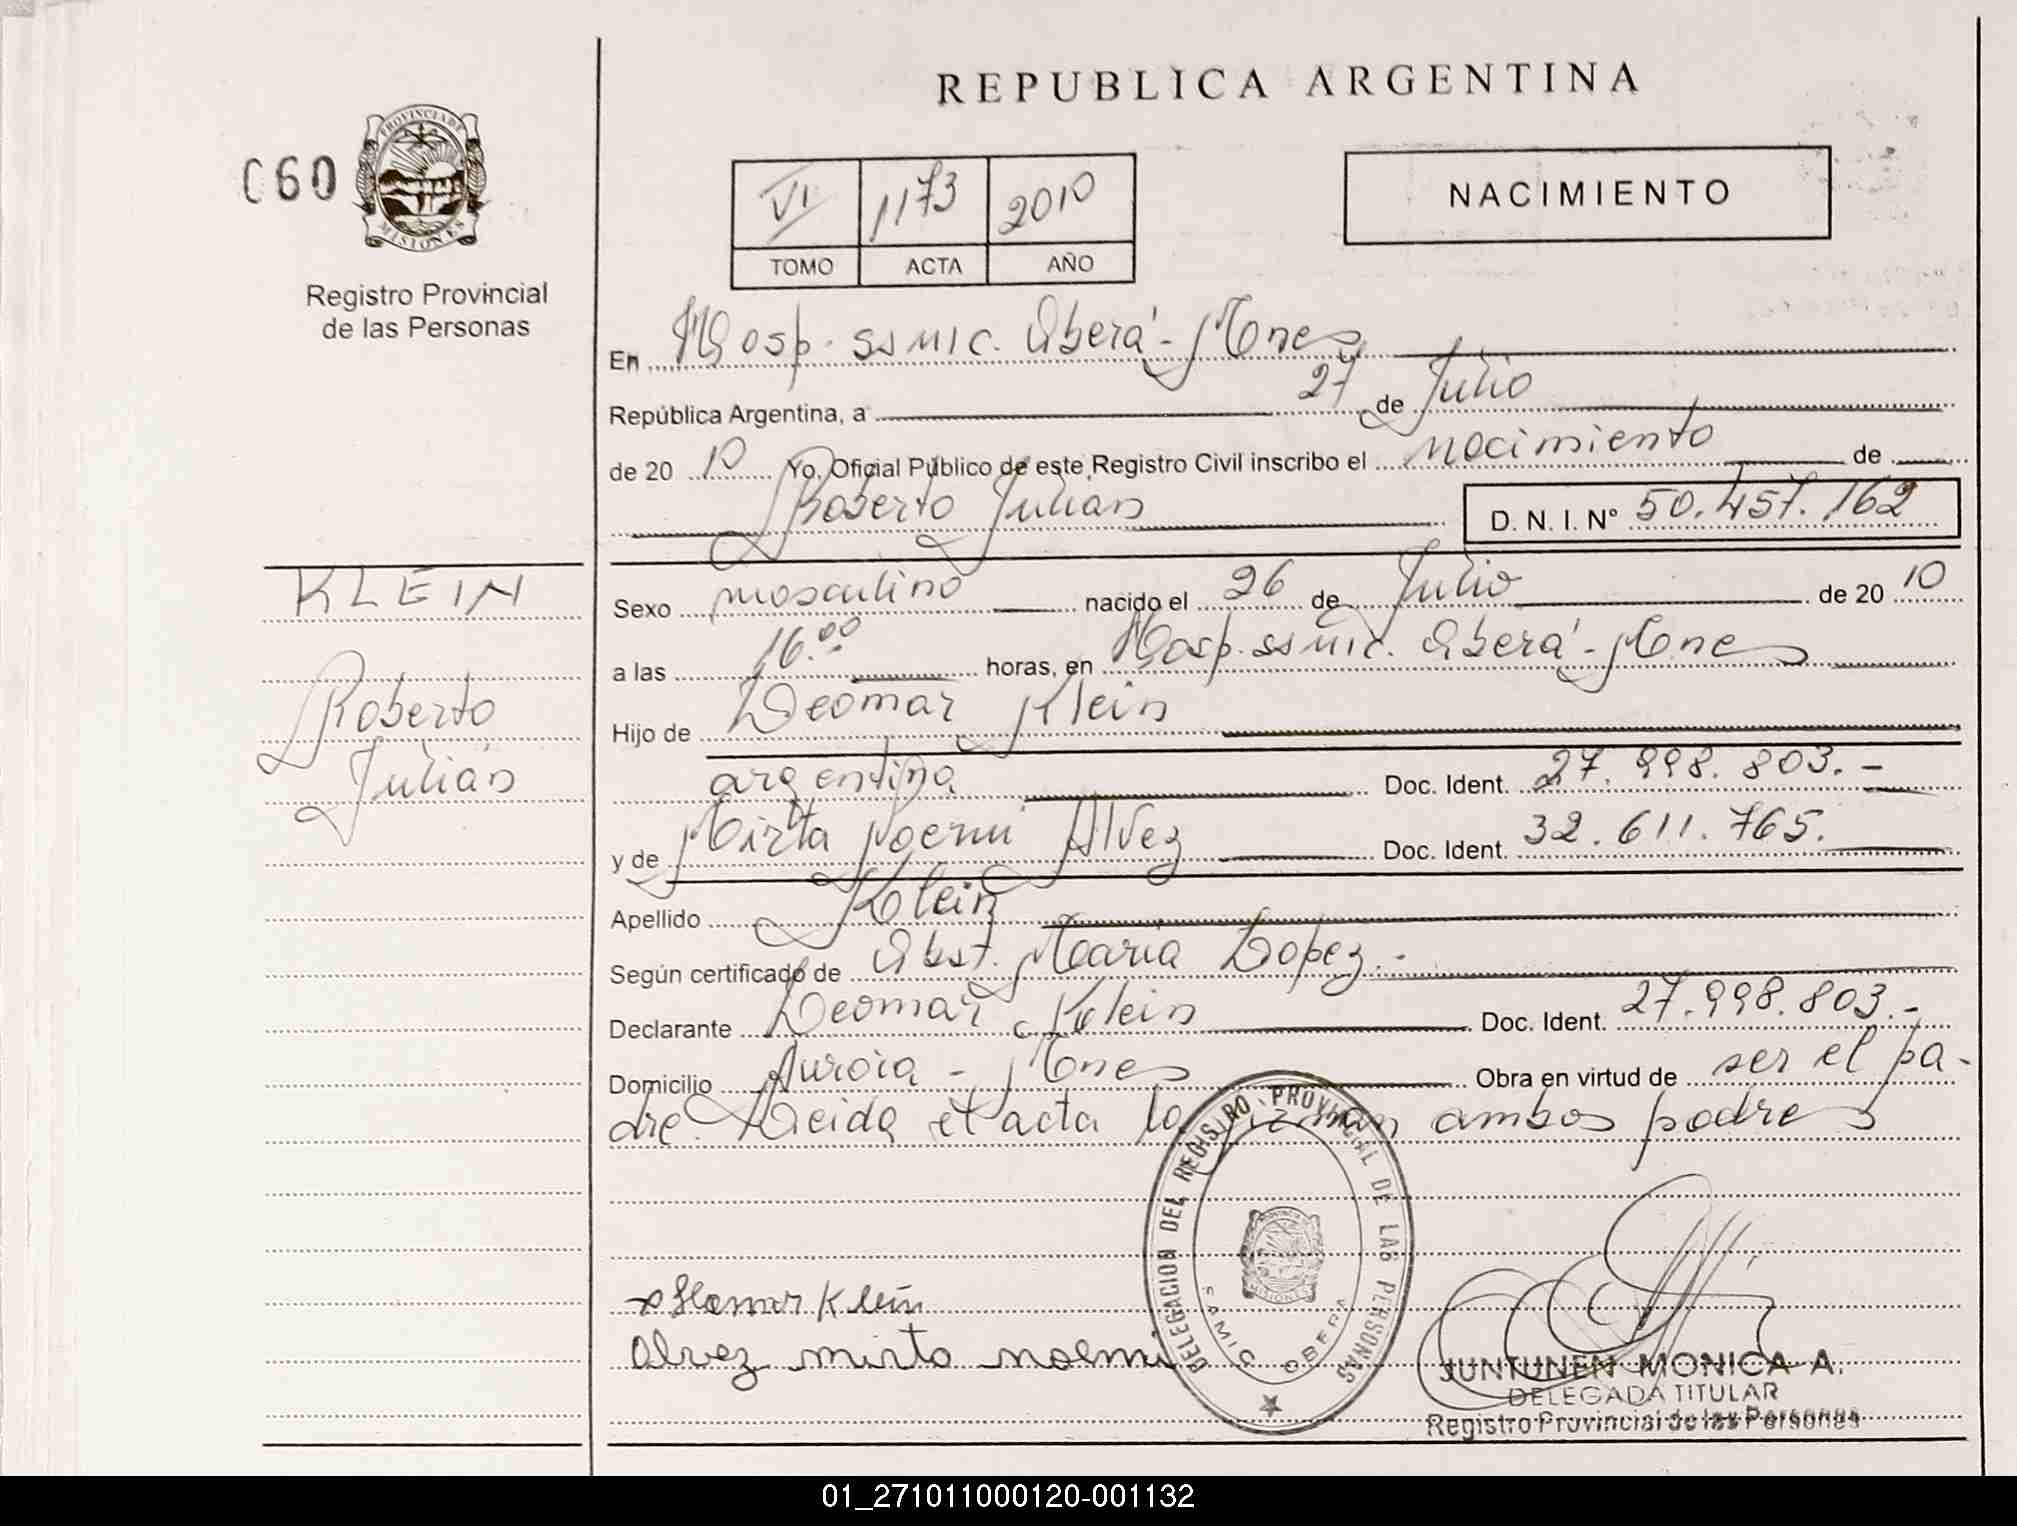 REPUBLICA ARGENTINA
C60
PROVINCIA DE
MISIONES
Registro Provincial
de las Personas
VI 1173 2010
TOMO ACTA AÑO
NACIMIENTO
En Hosp. SSMIC. Oberá - Mnes
República Argentina, a 27 de Julio
de 20 10 Yo, Oficial Público de este Registro Civil inscribo el nacimiento de
Roberto Julián
D. N. I. N° 50.457.162
KLEIN
Roberto
Julián
Sexo masculino nacido el 26 de Julio de 20 10
a las 16.00 horas, en Hosp. SSMIC. Oberá - Mnes
Hijo de Deomar Klein
argentina Doc. Ident. 27.998.803.-
y de Mirta Noemí Alvez Doc. Ident. 32.611.765.
Apellido Klein
Según certificado de Obst. María Lopez.-
Declarante Deomar Klein Doc. Ident. 27.998.803.-
Domicilio Aurora - Mnes Obra en virtud de ser el pa-
dre. Leida el acta la firman ambos padres
Klein
Alvez mirta noemi
DELEGACION DEL REGISTRO PROVINCIAL DE LAS PERSONAS
OBERA
PROVINCIA DE
MISIONES
JUNTUNEN MONICA A.
DELEGADA TITULAR
Registro Provincial de las Personas
01_271011000120-001132